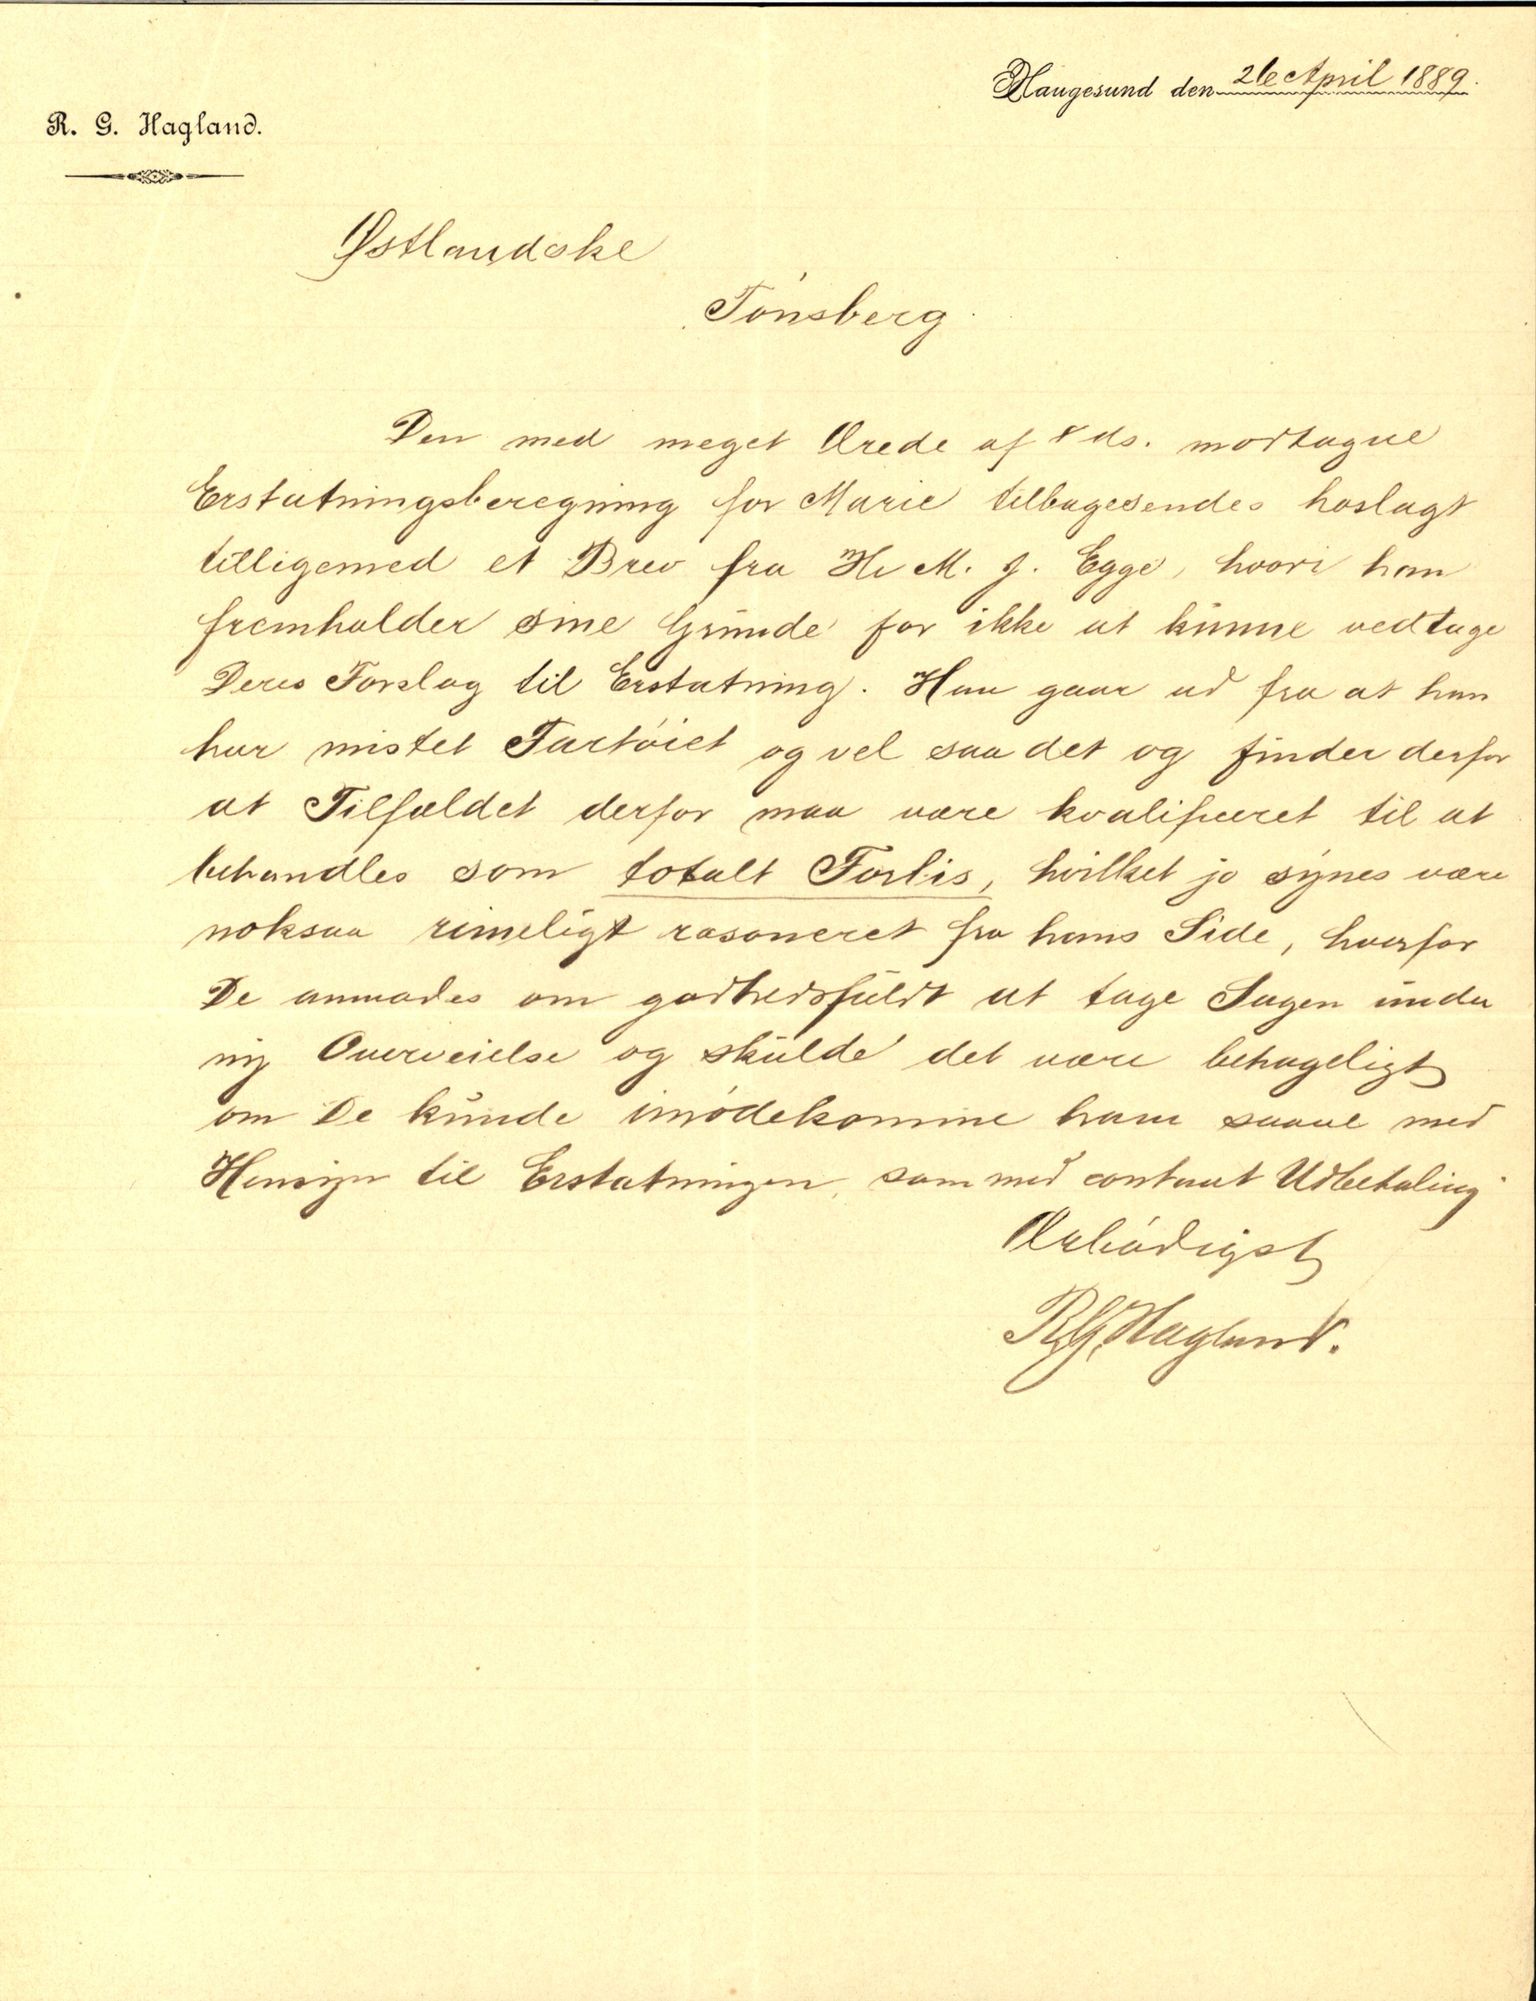 Haugesund den 26 April 1889.
R. G. Hagland.
Østlandske
Tønsberg.
Den med meget Ærede af ds. modtagne
Erstatningsberegning for Marie tilbagesendes hoslagt
tilligemed et Brev fra Hr M. J. Egge, hvori han
fremholder sine Grunde for ikke at kunne vedtage
Deres Forslag til Erstatning. Han gaar ud fra at han
har mistet Fartøiet og vel saa det og finder derfor
at Tilfældet derfor maa være kvalificeret til at
behandles som totalt Forlis, hvilket jo synes være
noksaa rimeligt rasoneret fra hans Side, hvorfor
De anmodes om godhedsfuldt at tage Sagen under
ny Overveielse og skulde det være behageligt
om De kunde imødekomme ham saavel med
Hensyn til Erstatningen, som med contant Udbetaling
Ærbødigst
R.G. Hagland.